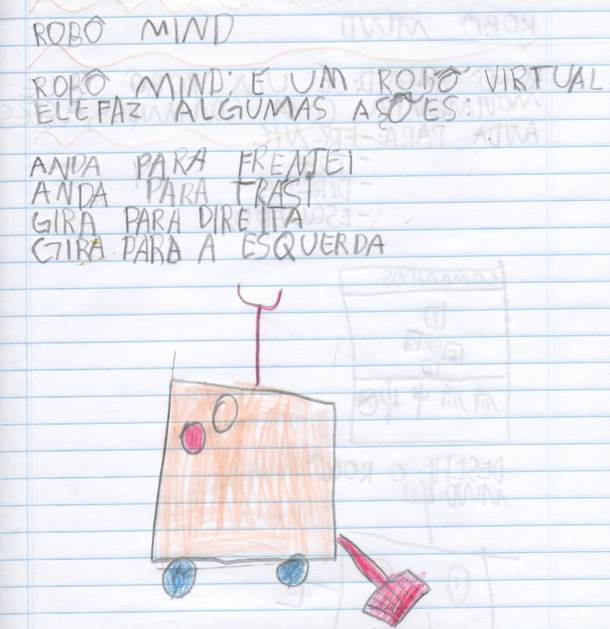 ROBÔ MIND
ROBÔ MIND: E UM ROBÔ VIRTUAL
ELE FAZ ALGUMAS AÇÕES:
ANDA PARA FRENTE
ANDA PARA TRAS
GIRA PARA DIREITA
GIRA PARA A ESQUERDA